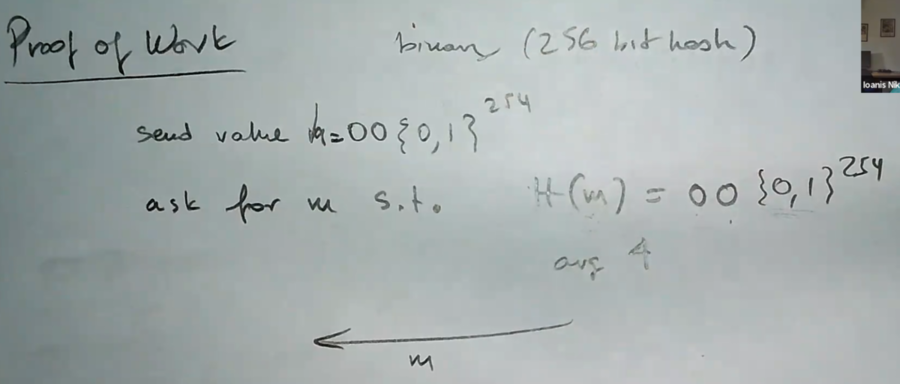 Proof of Work
binary (256 bit hash)
send value h=00{0,1}^254
ask for m s.t. H(m) = 00{0,1}^254
avg 4
m
Ioanis Nik